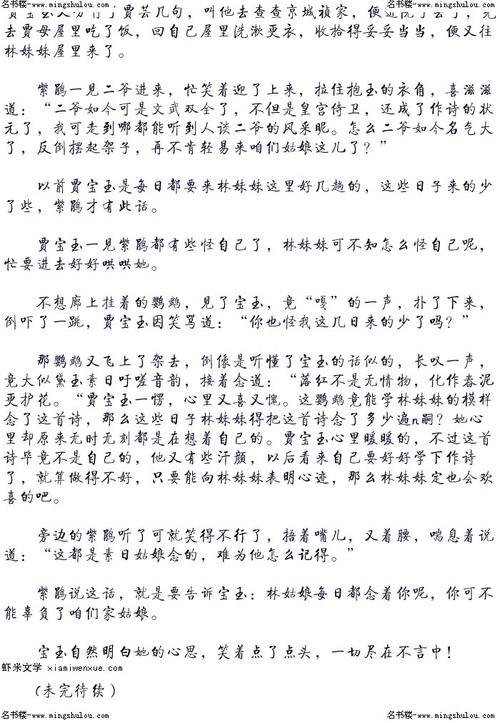 名书楼-www.mingshulou.com 名书楼-www.mingshulou.com
去贾母屋里吃了饭，回自己屋里洗漱更衣，收拾得妥妥当当，便又往
林妹妹屋里来了。
紫鹃一见二爷进来，忙笑着迎了上来，拉住抱玉的衣角，喜滋滋
道：“二爷如今可是文武双全了，不但是皇宫侍卫，还成了作诗的状
元了，我可走到哪都能听到人谈二爷的风采呢。怎么二爷如今名气大
了，反倒摆起架子，再不肯轻易来咱们姑娘这儿了？”
以前贾宝玉是每日都要来林妹妹这里好几趟的，这些日子来的少
了些，紫鹃才有此话。
贾宝玉一见紫鹃都有些怪自己了，林妹妹可不知怎么怪自己呢，
忙要进去好好哄哄她。
不想廊上挂着的鹦鹉，见了宝玉，竟“嘎”的一声，扑了下来，
倒吓了一跳，贾宝玉因笑骂道：“你也怪我这几日来的少了吗？”
那鹦鹉又飞上了架去，倒像是听懂了宝玉的话似的，长叹一声，
竟大似黛玉素日吁嗟音韵，接着念道：“落红不是无情物，化作春泥
更护花。”贾宝玉一愣，心里又喜又愧。这鹦鹉竟能学林妹妹的模样
念了这首诗，那么这些日子林妹妹得把这首诗念了多少遍n嗣？她心
里却原来无时无刻都是在想着自己的。贾宝玉心里暖暖的，不过这首
诗毕竟不是自己的，他又有些汗颜，以后看来自己要好好学下作诗
了，就算做得不好，只要能向林妹妹表明心迹，那么林妹妹定也会欢
喜的吧。
旁边的紫鹃听了可就笑得不行了，捂着嘴儿，叉着腰，喘息着说
道：“这都是素日姑娘念的，难为他怎么记得。”
紫鹃说这话，就是要告诉宝玉：林姑娘每日都念着你呢，你可不
能辜负了咱们家姑娘。
宝玉自然明白她的心思，笑着点了点头，一切尽在不言中！
虾米文学 xiamiwenxue.com
（未完待续）
名书楼-www.mingshulou.com 名书楼-www.mingshulou.com